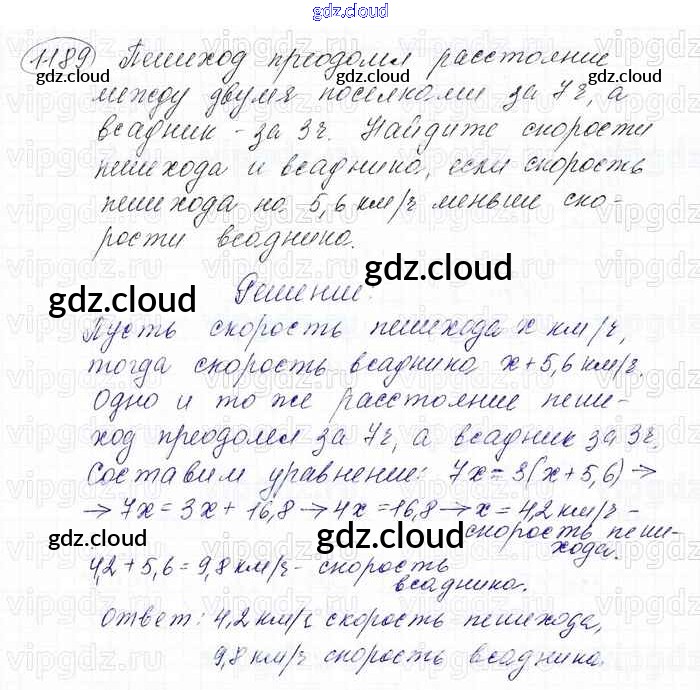 gdz.cloud
1189 Пешеход преодолел расстояние
gdz.cloud gdz.cloud gdz.cloud
между двумя поселками за 7 ч, а
всадник - за 3 ч. Найдите скорости
пешехода и всадника, если скорость
пешехода на 5,6 км/ч меньше ско-
рости всадника.
gdz.cloud
Решение.
gdz.cloud
Пусть скорость пешехода x км/ч,
тогда скорость всадника x+5,6 км/ч.
Одно и то же расстояние пеше-
ход преодолел за 7 ч, а всадник за 3 ч.
Составим уравнение: 7x = 3(x+5,6) →
→ 7x = 3x + 16,8 → 4x = 16,8 → x = 4,2 км/ч -
скорость пеше-
хода.
gdz.cloud gdz.cloud gdz.cloud
4,2 + 5,6 = 9,8 км/ч - скорость
всадника.
Ответ: 4,2 км/ч скорость пешехода,
9,8 км/ч скорость всадника.